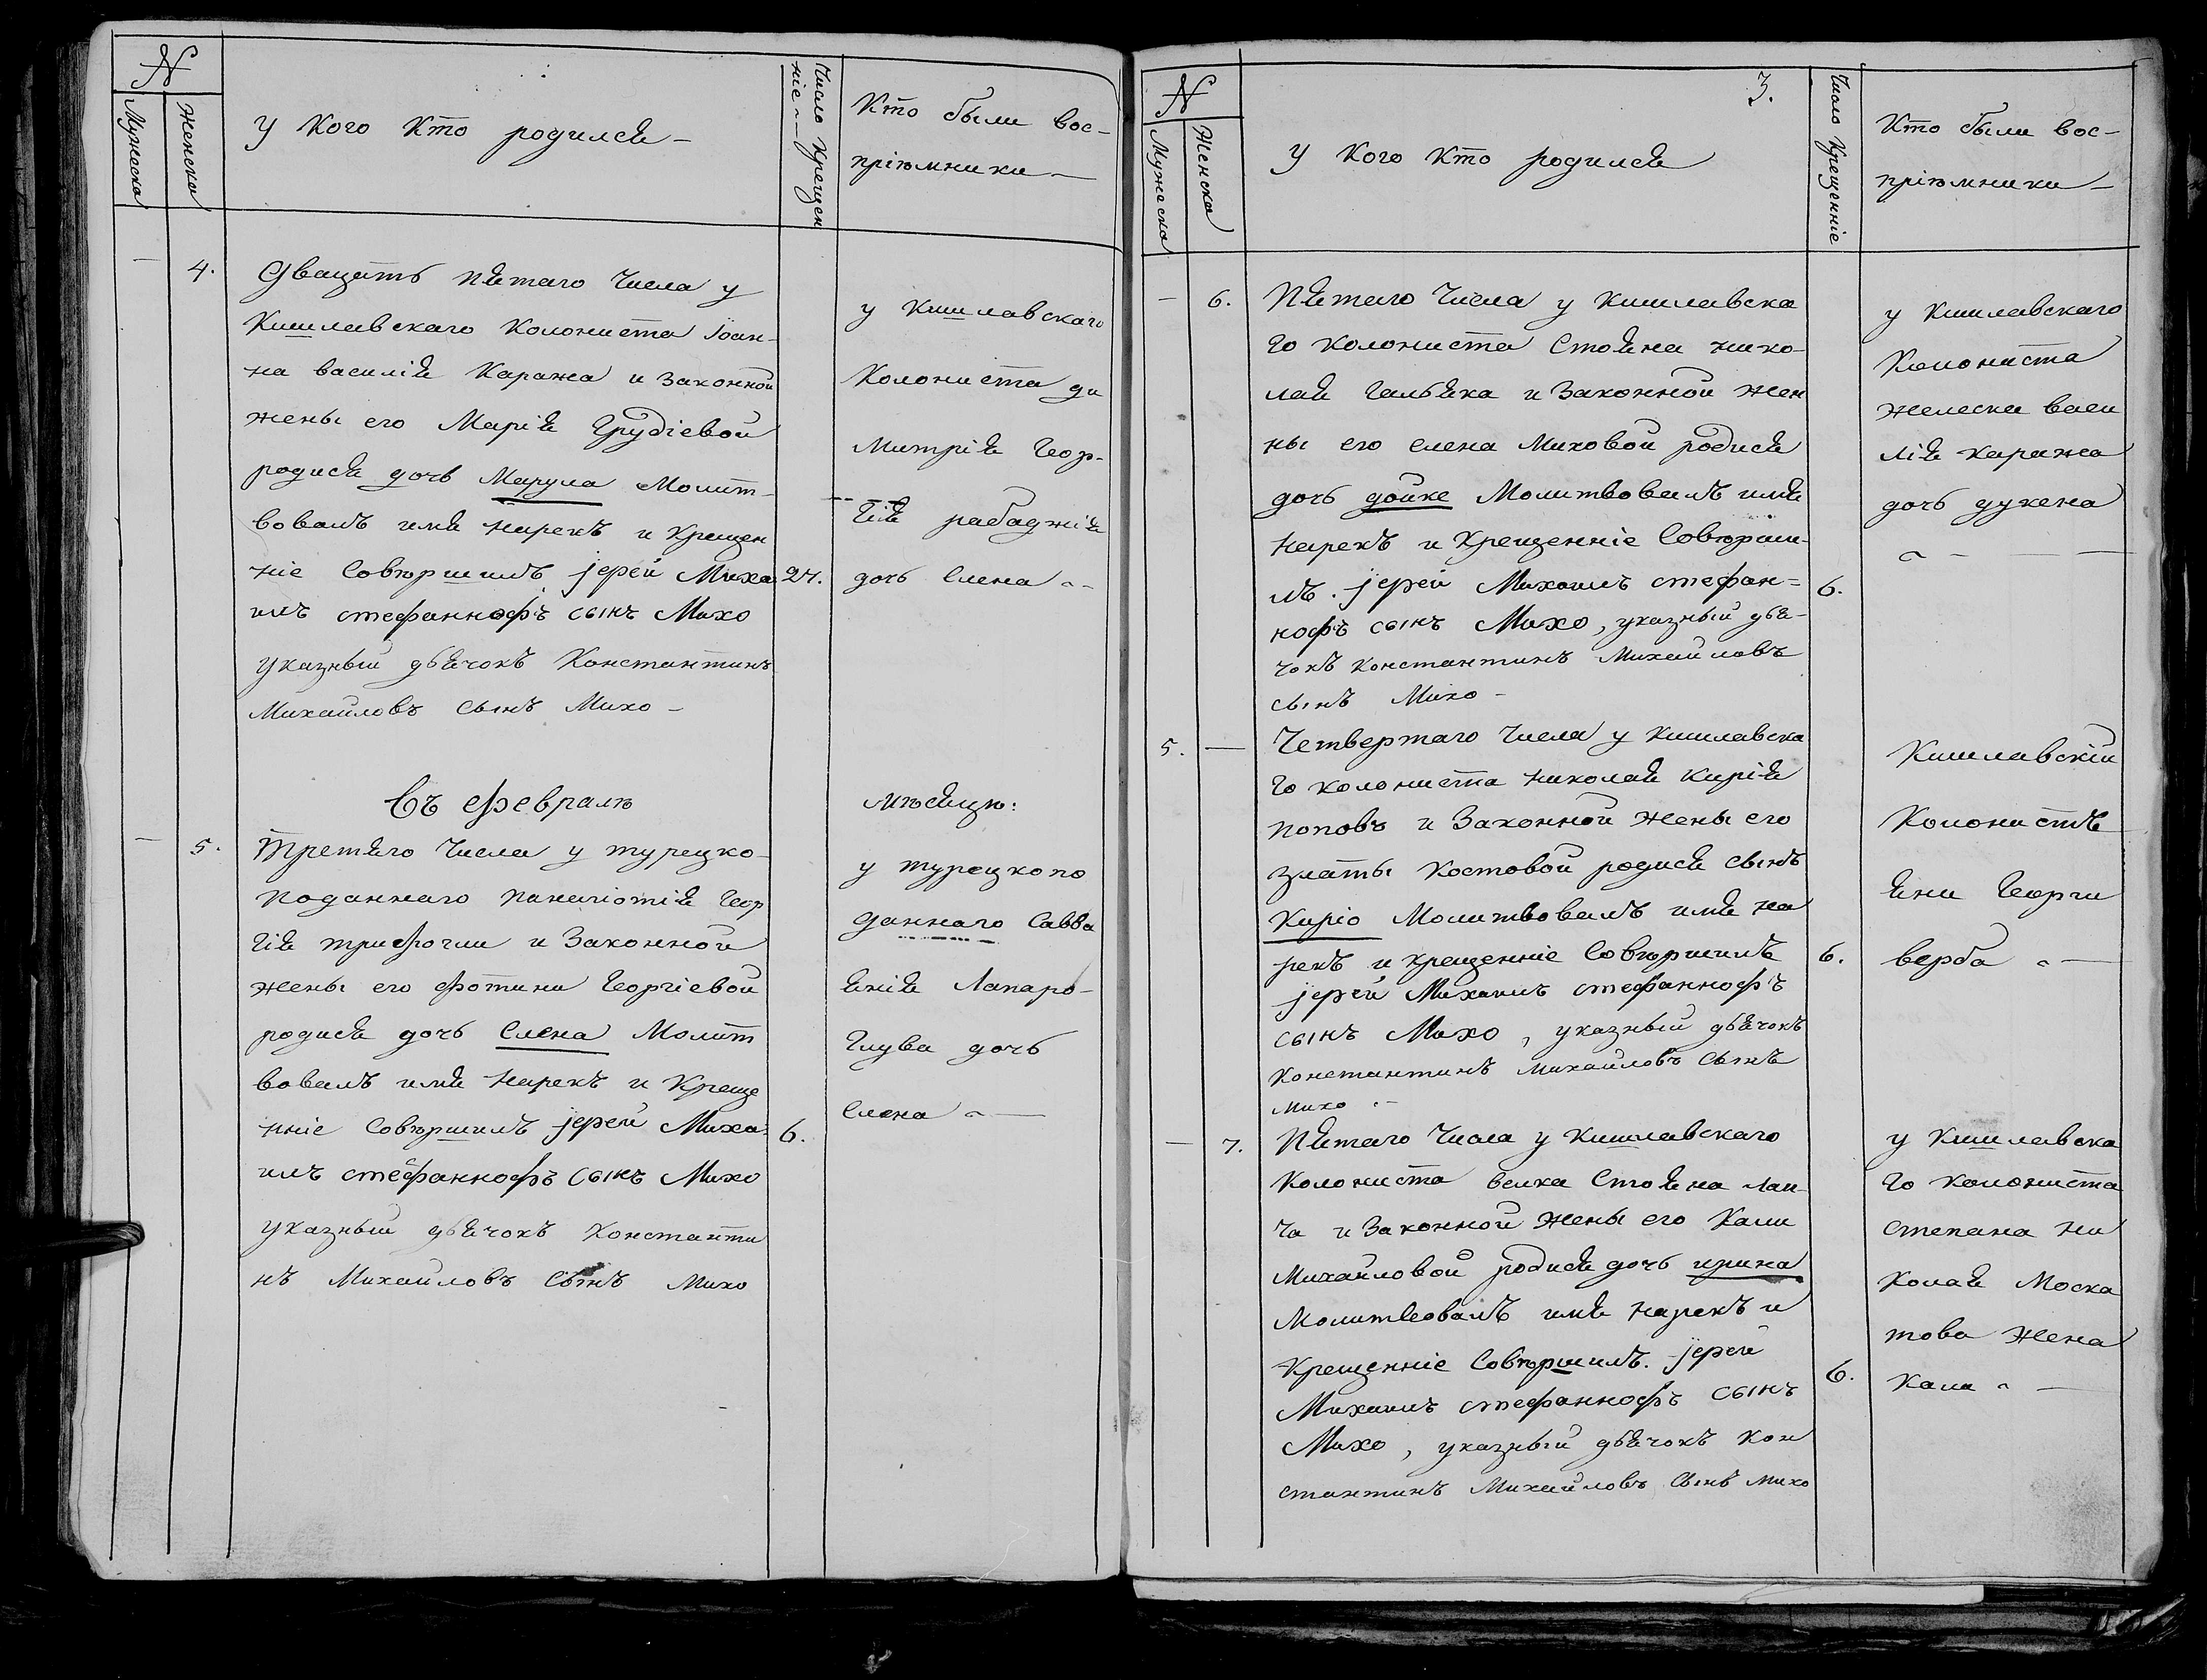 N
Мужеска
Женска
У кого кто родился -
Число крещен
ніе
Кто были вос-
пріѣмники -
4.
Дващать пятаго числа у
Кишлавскаго колониста Іоан-
на василія Каража и законной
жены его Марія Грудіевой
родися дочь Марула молит-
вовалъ имя нарекъ и крещен
ніе совѣршилъ іерей Миха
илъ стефанофъ сынъ Михо
указный дьячокъ Константинъ
Михайловъ сынъ Михо -
27.
у Кишлавскаго
Колониста ди
митрія Геор-
гія рабаджія
дочь Елена
Въ февралѣ
мѣсяцѣ:
5.
Третяго числа у турецко-
поданнаго панагіотія Геор
гія трифогли и законной
жены его фотини Георгіевой
родися дочь Елена молит
вовалъ имя нарекъ и креще
нніе совѣршилъ іерей Миха
илъ стефаннофъ сынъ Михо
указный дьячокъ Константи
нъ Михайловъ сынъ Михо
6.
у турецкопо
даннаго Савва
янія Лапаро-
глува дочь
Елена
3.
N
Мужеска
Женска
У кого кто родился
Число крещенніе
Кто были вос-
пріѣмники -
6.
Пятаго числа у кишлавска
го колониста Стояна нико-
лая Гальяка и законной жен
ны его елена Миховой родися
дочь дойке молитвовалъ имя
нарекъ и крещенніе совѣрши-
лъ. іерей Михаилъ стефан=
нофъ сынъ Михо, указный дья-
чокъ константинъ Михайловъ
сынъ Михо -
6.
у кишлавскаго
Колониста
желеска васи
лія каража
дочь дукена
5.
Четвертаго числа у кишлавска
го колониста николая кирія
поповъ и законной жены его
златы костовой родися сынъ
Киріо молитвовалъ имя на
рекъ и крещенніе совѣршилъ
іерей Михаилъ стефаннофъ
сынъ Михо, указный дьячокъ
константинъ Михайловъ сынъ
михо
6.
Кишлавскій
Колонистъ
яни Георги
верба
7.
Пятаго числа у кишлавскаго
колониста велка Стояна лап-
ча и законной жены его Кали
Михайловой родися дочь ирина
молитвовалъ имя нарекъ и
крещенніе совѣршилъ. іерей
Михаилъ стефаннофъ сынъ
Михо, указный дьячокъ кон
стантинъ Михайловъ сынъ михо
6.
у кишлавска
го колониста
степана ни
колая моска
това жена
кали